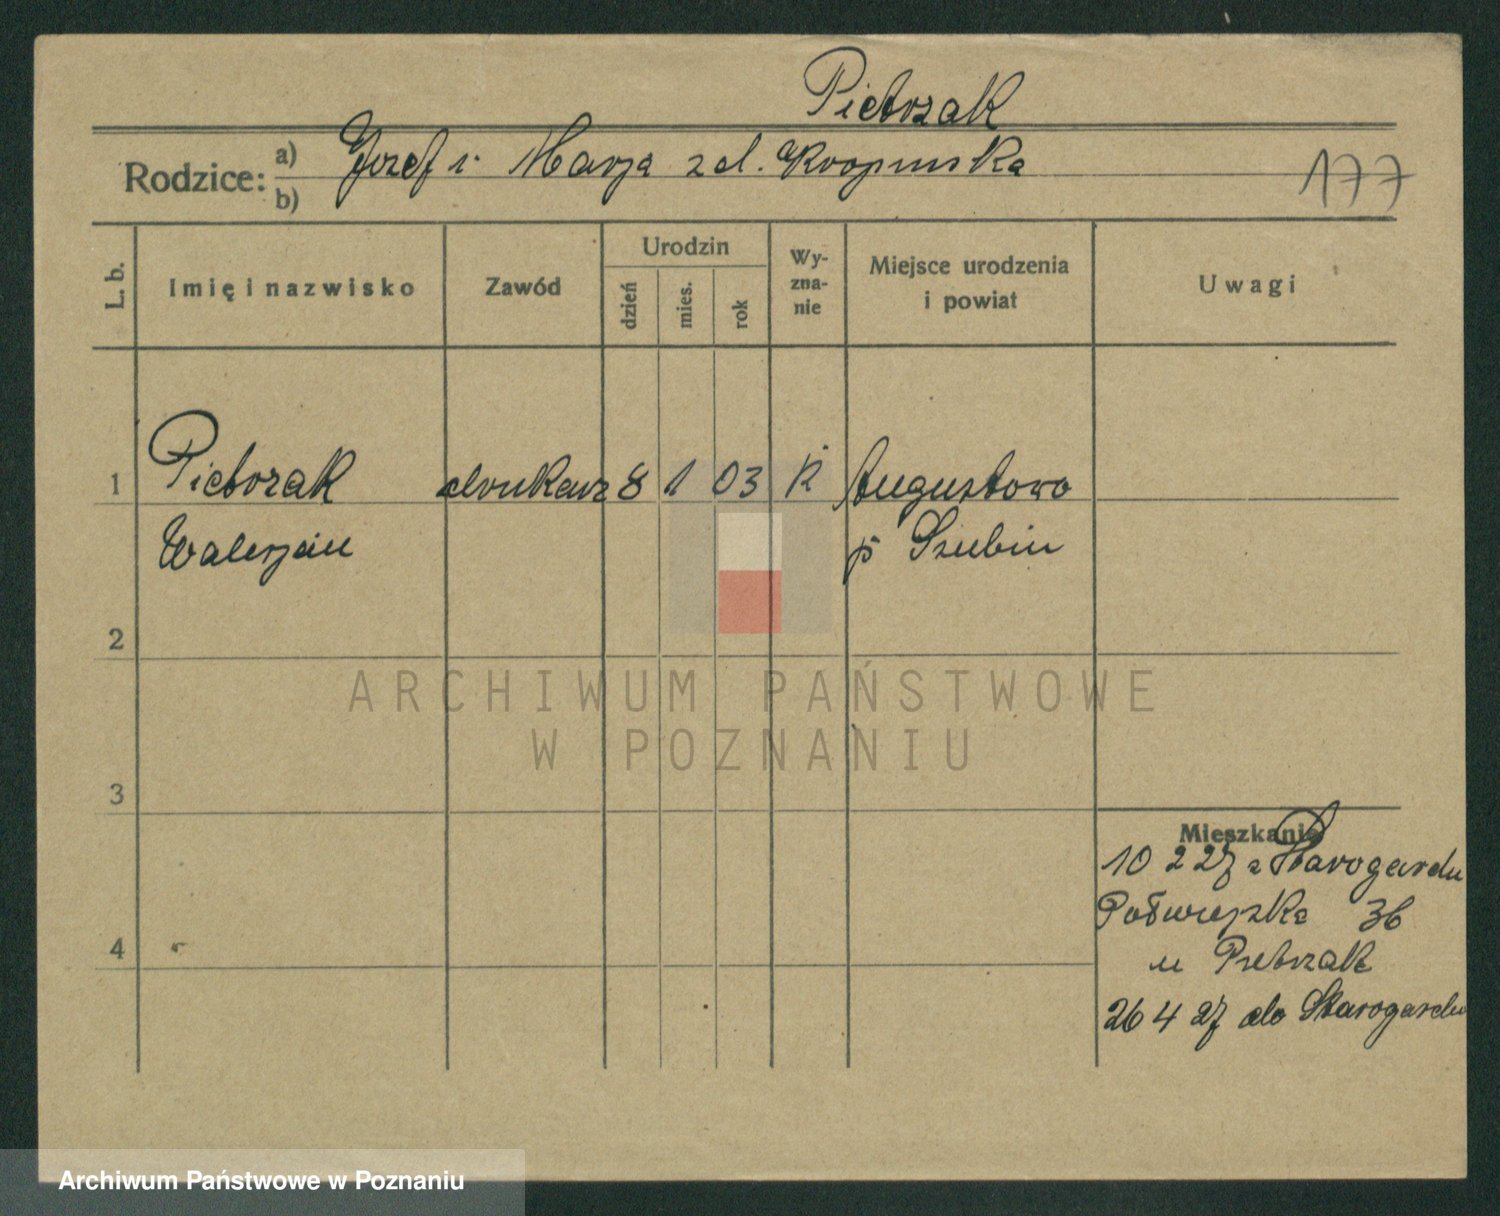 Pietrzak
Rodzice:
a) Józef i Marja zd. Kropinska
b)
177
L. b.
Imię i nazwisko
Zawód
Urodzin
dzień
mies.
rok
Wy-
zna-
nie
Miejsce urodzenia
i powiat
Uwagi
1 Pietrzak drukarz 8 1 03 K Augustowo
Walerjan p Szubin
2
ARCHIWUM PAŃSTWOWE
W POZNANIU
3
Mieszkanie
10 2 27 z Starogardu
36
4
u Pietrzak
26 4 27 do Starogardu
Archiwum Państwowe w Poznaniu